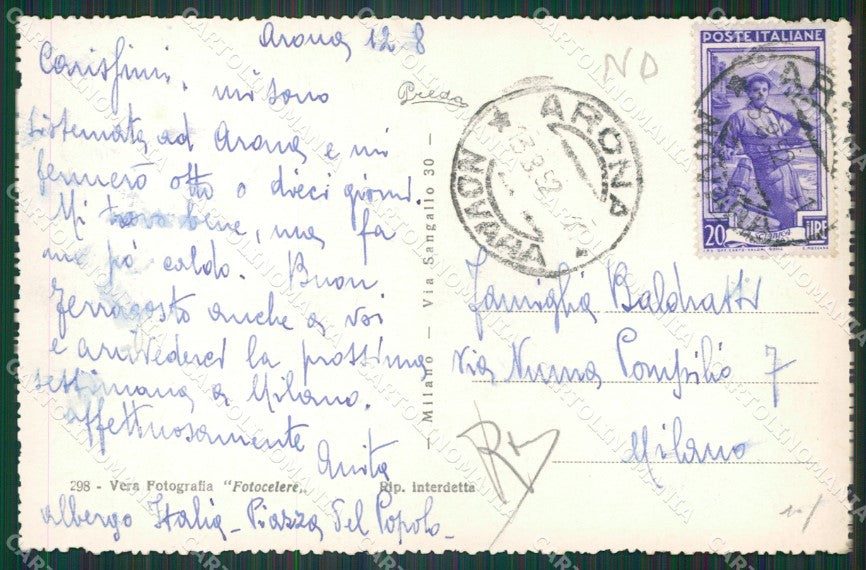 Arona 12 8
Carissimi, mi sono
sistemata ad Arona e mi
fermerò otto o dieci giorni.
Mi trovo bene, ma fa
un pó caldo. Buon
ferragosto anche a voi
e arrivederci la prossima
settimana a Milano.
Affettuosamente
Anita
298 - Vera Fotografia "Fotocelere„
Rip. interdetta
albergo Italia - Piazza del Popolo -
— Milano — Via Sangallo 30 —
ND
ARONA
NOVARA
POSTE ITALIANE
20 LIRE
Famiglia Baldratti
Via Numa Pompilio 7
Milano
CARTOLINOMANIA